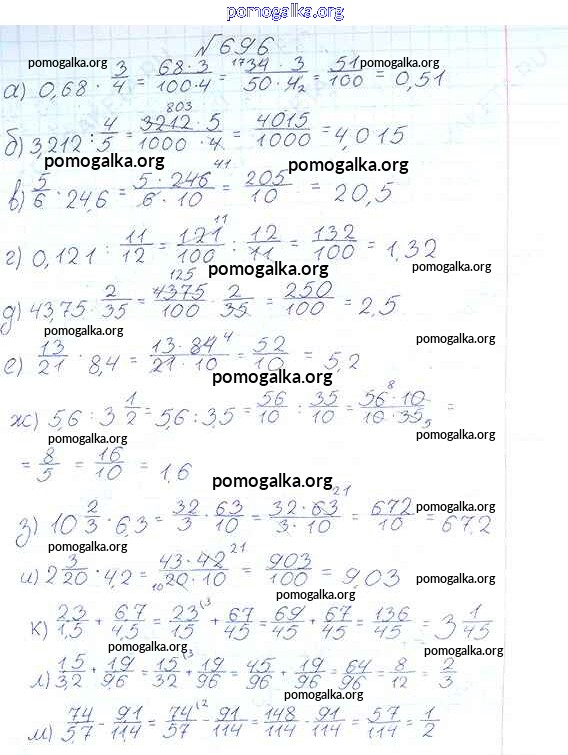 pomogalka.org
№696
pomogalka.org pomogalka.org
а) 0,68 · 3/4 = 68·3/100·4 = 17 34·3/50·4 2 = 51/100 = 0,51
б) 3,212 : 4/5 = 803 3212·5/1000·4 = 4015/1000 = 4,015
pomogalka.org pomogalka.org
в) 5/6 · 24,6 = 5·246 41/6·10 = 205/10 = 20,5
г) 0,121 : 11/12 = 121 11/100 : 12/11 = 132/100 = 1,32
pomogalka.org pomogalka.org
д) 43,75 · 2/35 = 125 4375/100 · 2/35 = 250/100 = 2,5
pomogalka.org pomogalka.org
е) 13/21 · 8,4 = 13·84 4/21·10 = 52/10 = 5,2
pomogalka.org
ж) 5,6 : 3 1/2 = 5,6 : 3,5 = 56/10 : 35/10 = 56 8·10/10·35 5 =
pomogalka.org pomogalka.org
= 8/5 = 16/10 = 1,6
pomogalka.org
з) 10 2/3 · 6,3 = 32/3 · 63/10 = 32·63 21/3·10 = 672/10 = 67,2
pomogalka.org pomogalka.org
pomogalka.org
и) 2 3/20 · 4,2 = 43·42 21/10 20·10 = 903/100 = 9,03
pomogalka.org
pomogalka.org
к) 2,3/1,5 + 6,7/4,5 = 23 3/15 + 67/45 = 69/45 + 67/45 = 136/45 = 3 1/45
pomogalka.org pomogalka.org
л) 1,5/3,2 + 1,9/9,6 = 15 3/32 + 19/96 = 45/96 + 19/96 = 64/96 = 8/12 = 2/3
pomogalka.org
м) 7,4/5,7 - 9,1/11,4 = 74 2/57 - 91/114 = 148/114 - 91/114 = 57/114 = 1/2